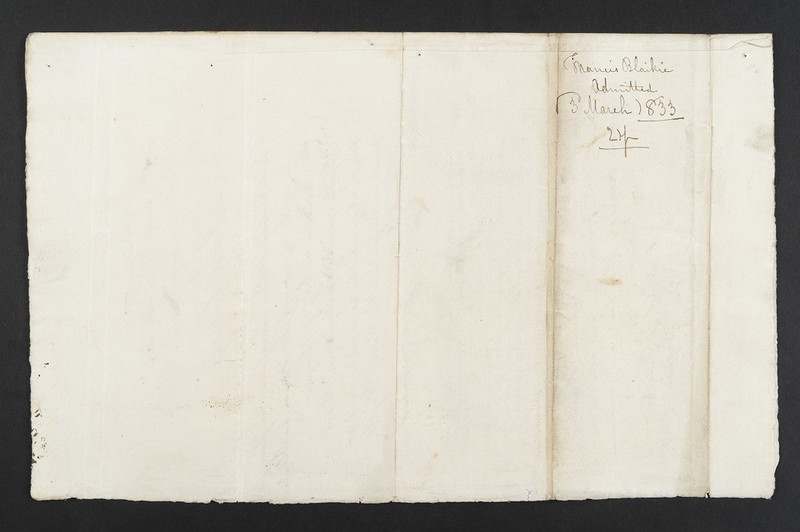 Francis Blaikie
Admitted
3 March 1833